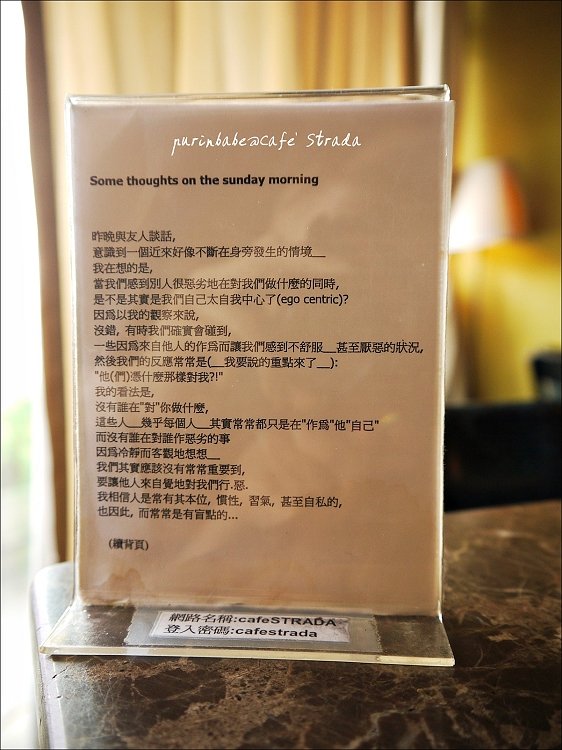 purinbabe@café Strada
Some thoughts on the sunday morning
昨晚與友人談話,
意識到一個近來好像不斷在身旁發生的情境__
我在想的是,
當我們感到別人很惡劣地在對我們做什麼的同時,
是不是其實是我們自己太自我中心了(ego centric)?
因為以我的觀察來說,
沒錯, 有時我們確實會碰到,
一些因為來自他人的作為而讓我們感到不舒服__甚至厭惡的狀況,
然後我們的反應常常是(__我要說的重點來了__):
"他(們)憑什麼那樣對我?!"
我的看法是,
沒有誰在"對"你做什麼,
這些人__幾乎每個人__其實常常都只是在"作為"他"自己"
而沒有誰在對誰作惡劣的事
因為冷靜而客觀地想想__
我們其實應該沒有常常重要到,
要讓他人來自覺地對我們行.惡.
我相信人是常有其本位, 慣性, 習氣, 甚至自私的,
也因此, 而常常是有盲點的...
(續背頁)
網路名稱:cafeSTRADA
登入密碼:cafestrada